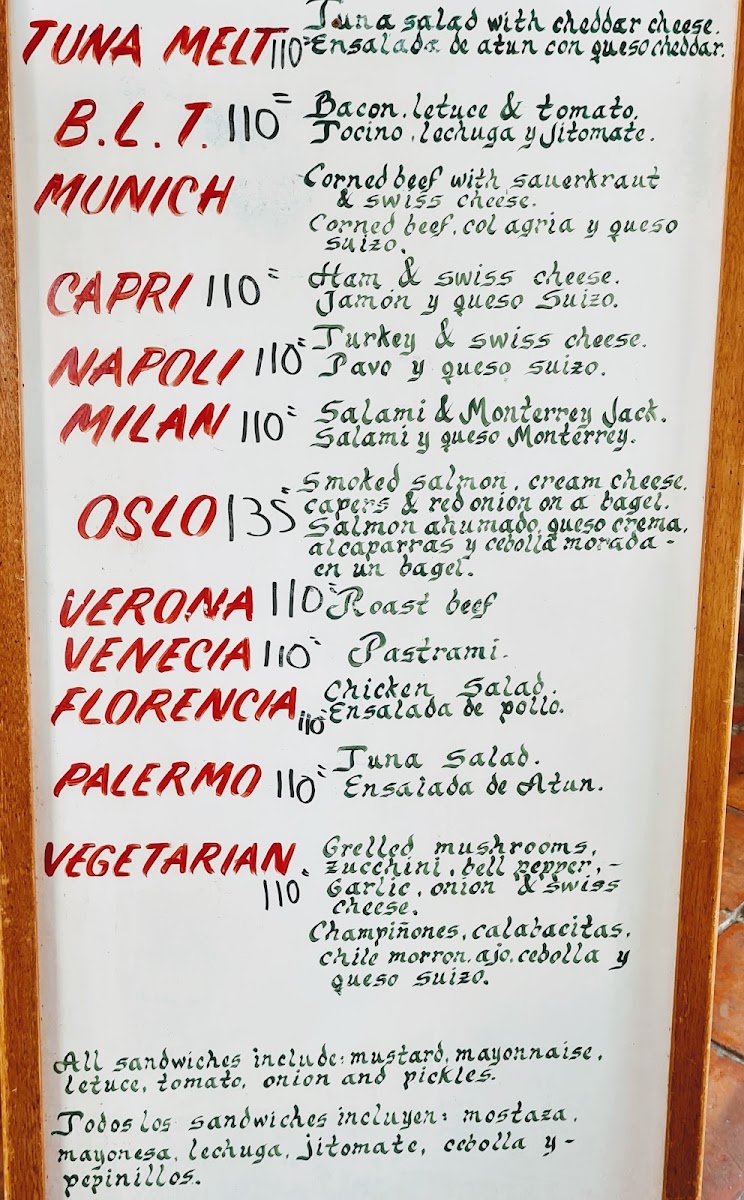 TUNA MELT 110= Tuna salad with cheddar cheese.
Ensalada de atun con queso cheddar.
B.L.T. 110= Bacon, letuce & tomato.
Tocino, lechuga y jitomate.
MUNICH Corned beef with sauerkraut
& swiss cheese.
Corned beef, col agria y queso
suizo.
CAPRI 110= Ham & swiss cheese.
Jamón y queso Suizo.
NAPOLI 110= Turkey & swiss cheese.
Pavo y queso suizo.
MILAN 110= Salami & Monterrey Jack.
Salami y queso Monterrey.
OSLO 135= Smoked salmon, cream cheese,
capers & red onion on a bagel.
Salmon ahumado, queso crema,
alcaparras y cebolla morada -
en un bagel.
VERONA 110= Roast beef
VENECIA 110= Pastrami.
FLORENCIA 110= Chicken Salad.
Ensalada de pollo.
PALERMO 110= Tuna Salad.
Ensalada de Atun.
VEGETARIAN 110= Grelled mushrooms,
zucchini, bell pepper, -
Garlic, onion & swiss
cheese.
Champiñones, calabacitas,
chile morron, ajo, cebolla y
queso suizo.
All sandwiches include: mustard, mayonnaise,
letuce, tomato, onion and pickles.
Todos los sandwiches incluyen: mostaza,
mayonesa, lechuga, jitomate, cebolla y -
pepinillos.